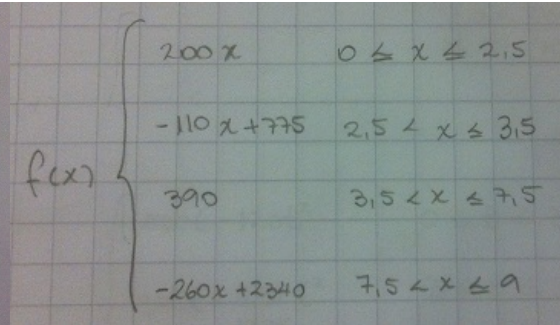 200x 0 ≤ x ≤ 2,5
-110x+775 2,5 < x ≤ 3,5
f(x)
390 3,5 < x ≤ 7,5
-260x+2340 7,5 < x ≤ 9